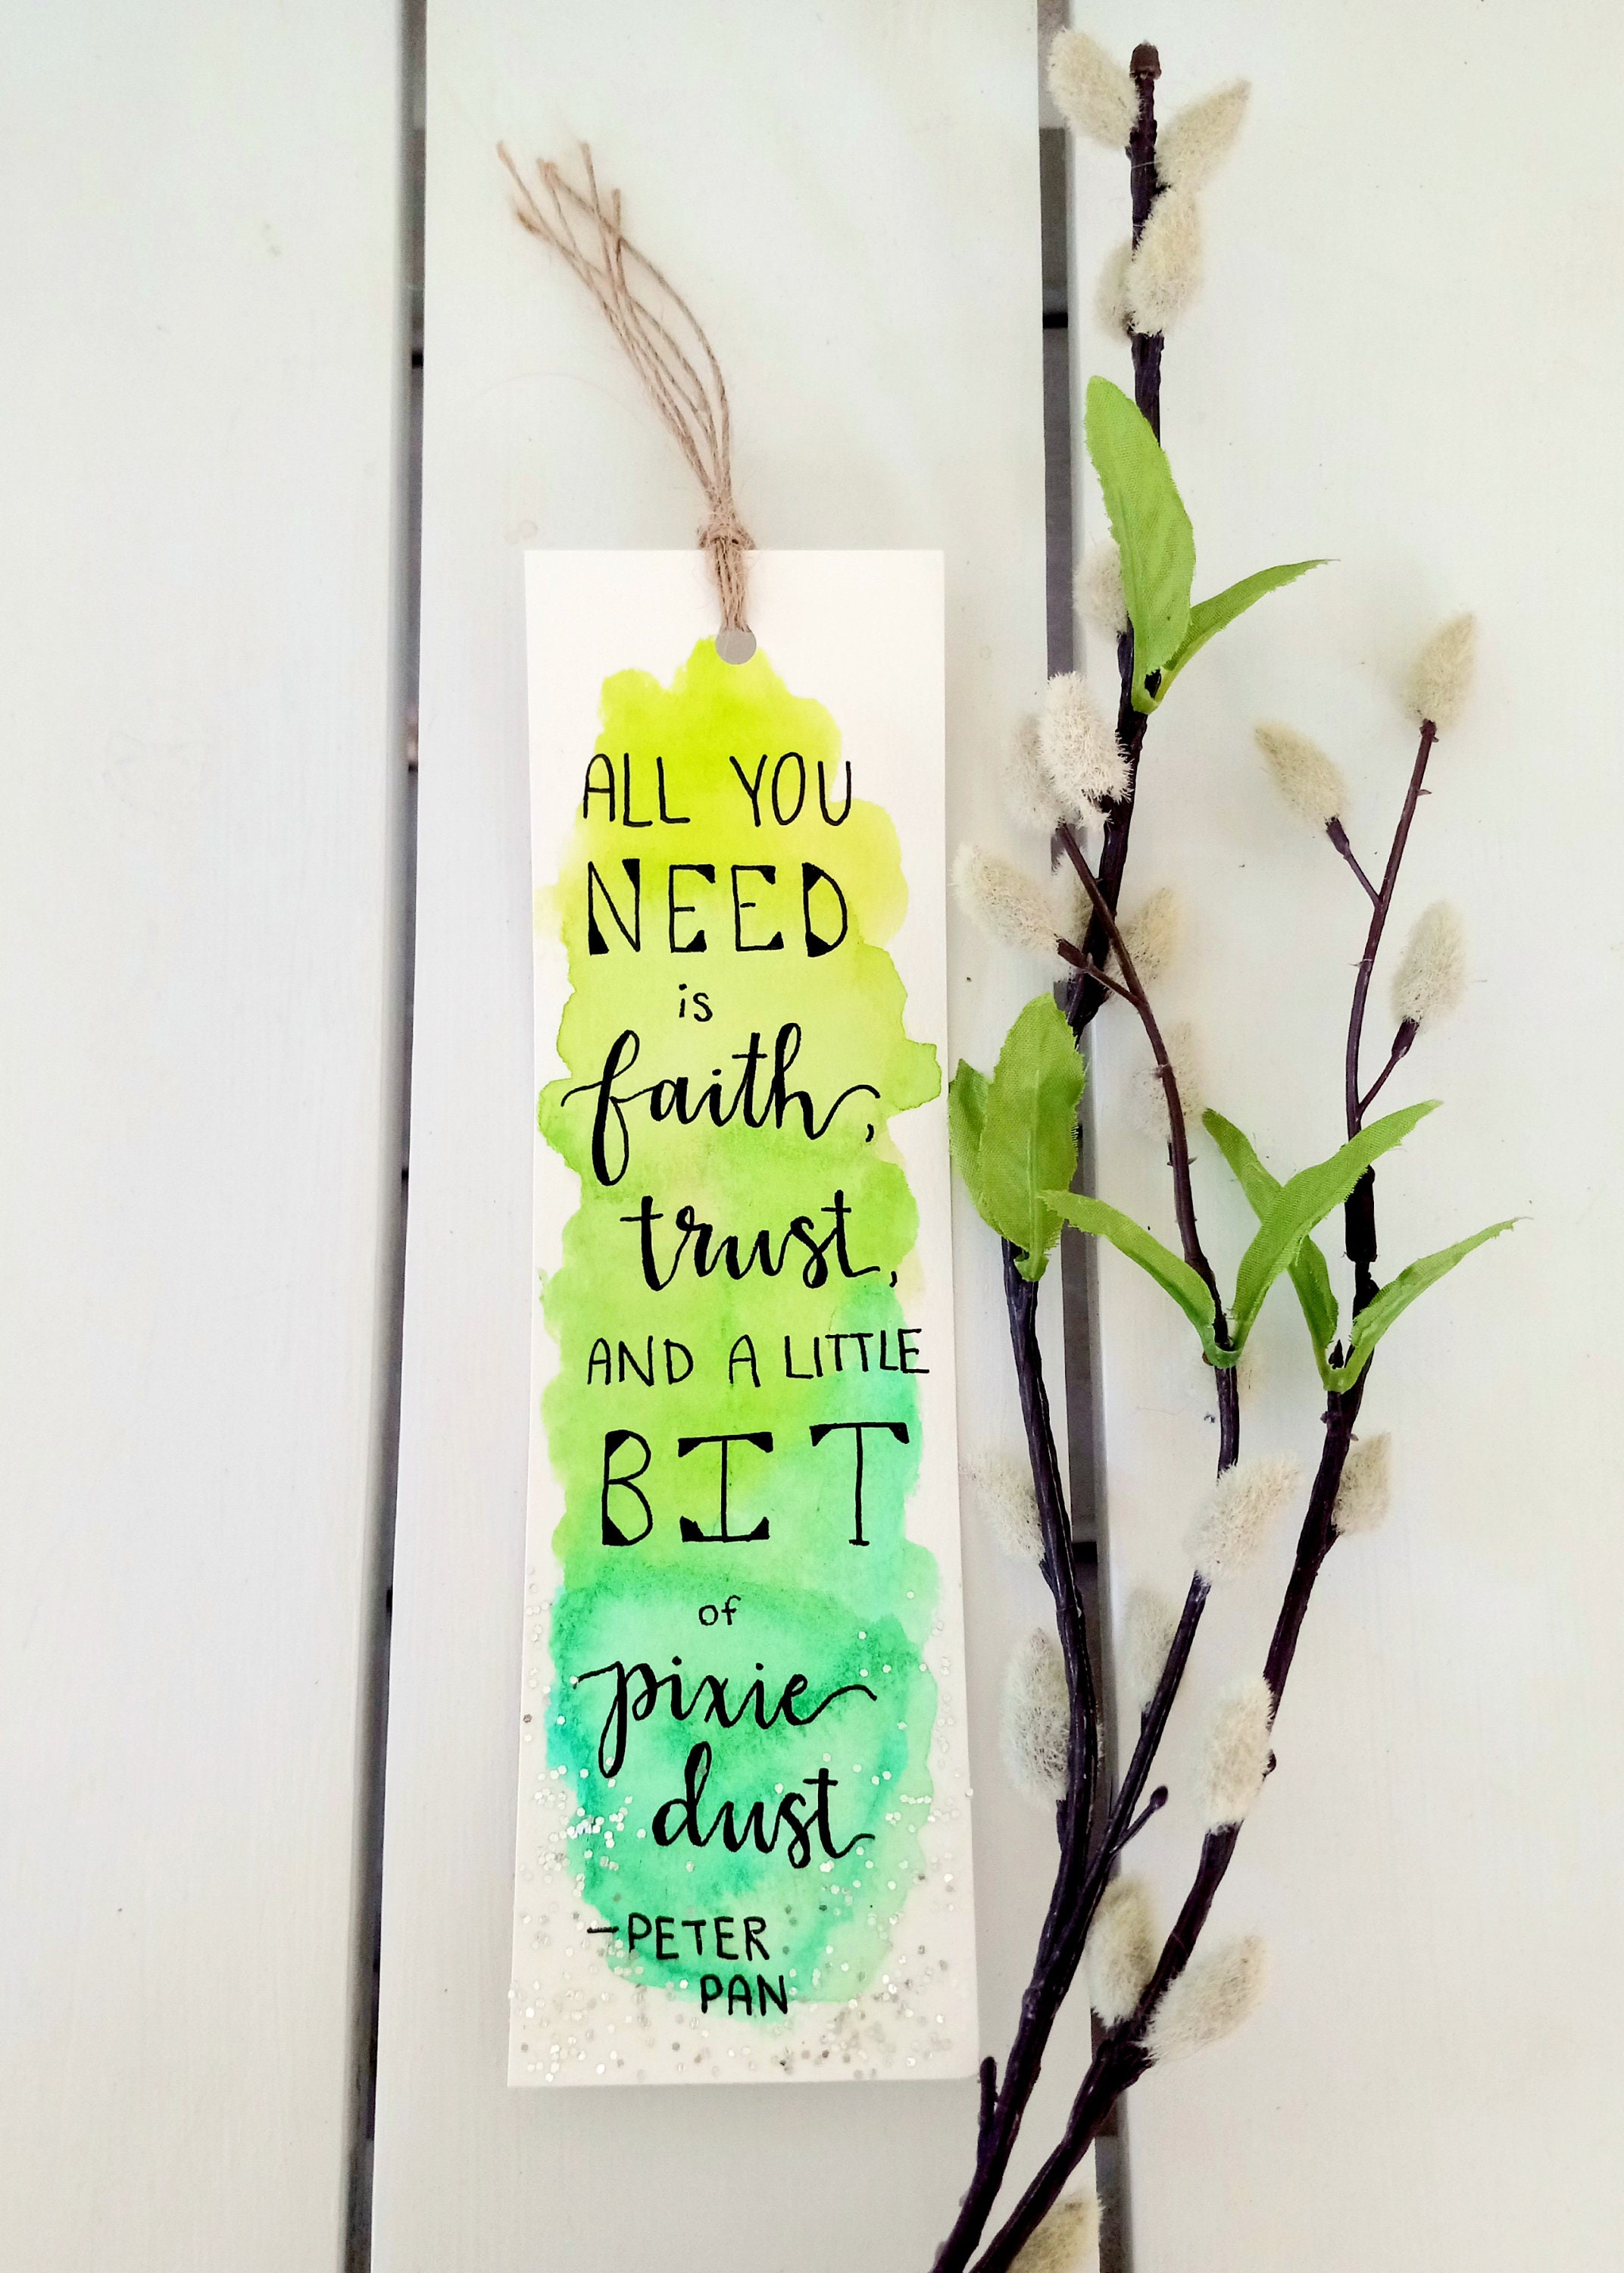 ALL YOU
NEED
is
faith,
trust,
AND A LITTLE
BIT
of
pixie
dust
-PETER
PAN